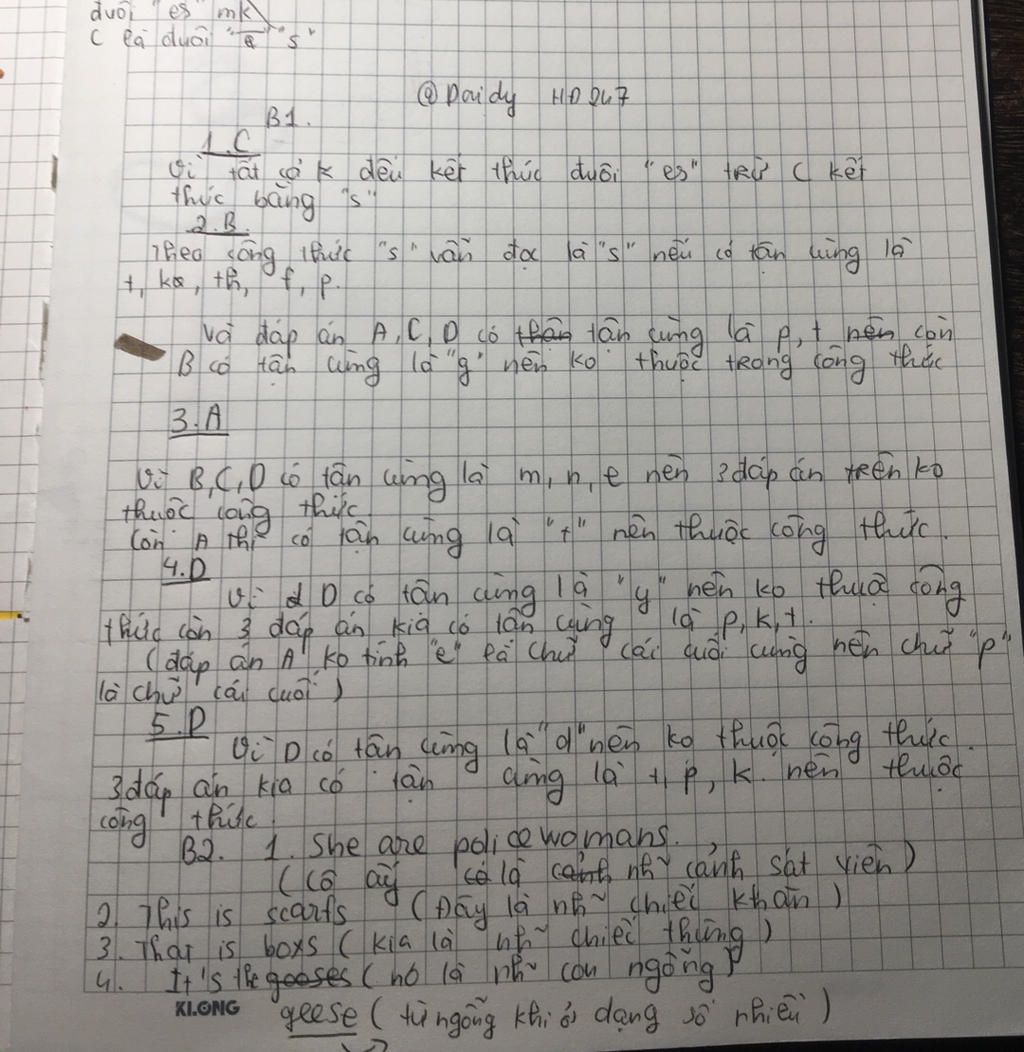 đuôi "es" mk
C là đuôi "s"
@Daidy HD247
B1.
1.C
Vì tất cả k đều kết thúc đuôi "es" trừ C kết
thúc bằng "s"
2.B
Theo công thức "s" vẫn đọc là "s" nếu có tận cùng là
t, ka, th, f, p.
Và đáp án A, C, D có thân tận cùng là p, t nên còn
B có tận cùng là "g" nên ko thuộc trong công thức
3.A
Vì B, C, D có tận cùng là m, n, e nên 3 đáp án trên ko
thuộc công thức
Còn A thì có tận cùng là "t" nên thuộc công thức.
4.D
Vì d D có tân cùng là "y" nên ko thuộc công
thức còn 3 đáp án kia có tận cùng là p, k, t.
(đáp án A ko tính "e" là chữ cái cuối cùng nên chữ "p"
là chữ cái cuối)
5.D
Vì D có tận cùng là "d" nên ko thuộc công thức.
3 đáp án kia có tận cùng là t, p, k. nên thuộc
công thức
B2. 1. She are policewomans.
(Cô ấy có là cảnh nh~ cảnh sát viên)
2. This is scarfs (Đây là nh~ chiếc khăn)
3. That is boxs (kia là nh~ chiếc thùng)
4. It's the gooses (nó là nh~ con ngỗng)
KLONG geese (từ ngỗng khi ở dạng số nhiều)